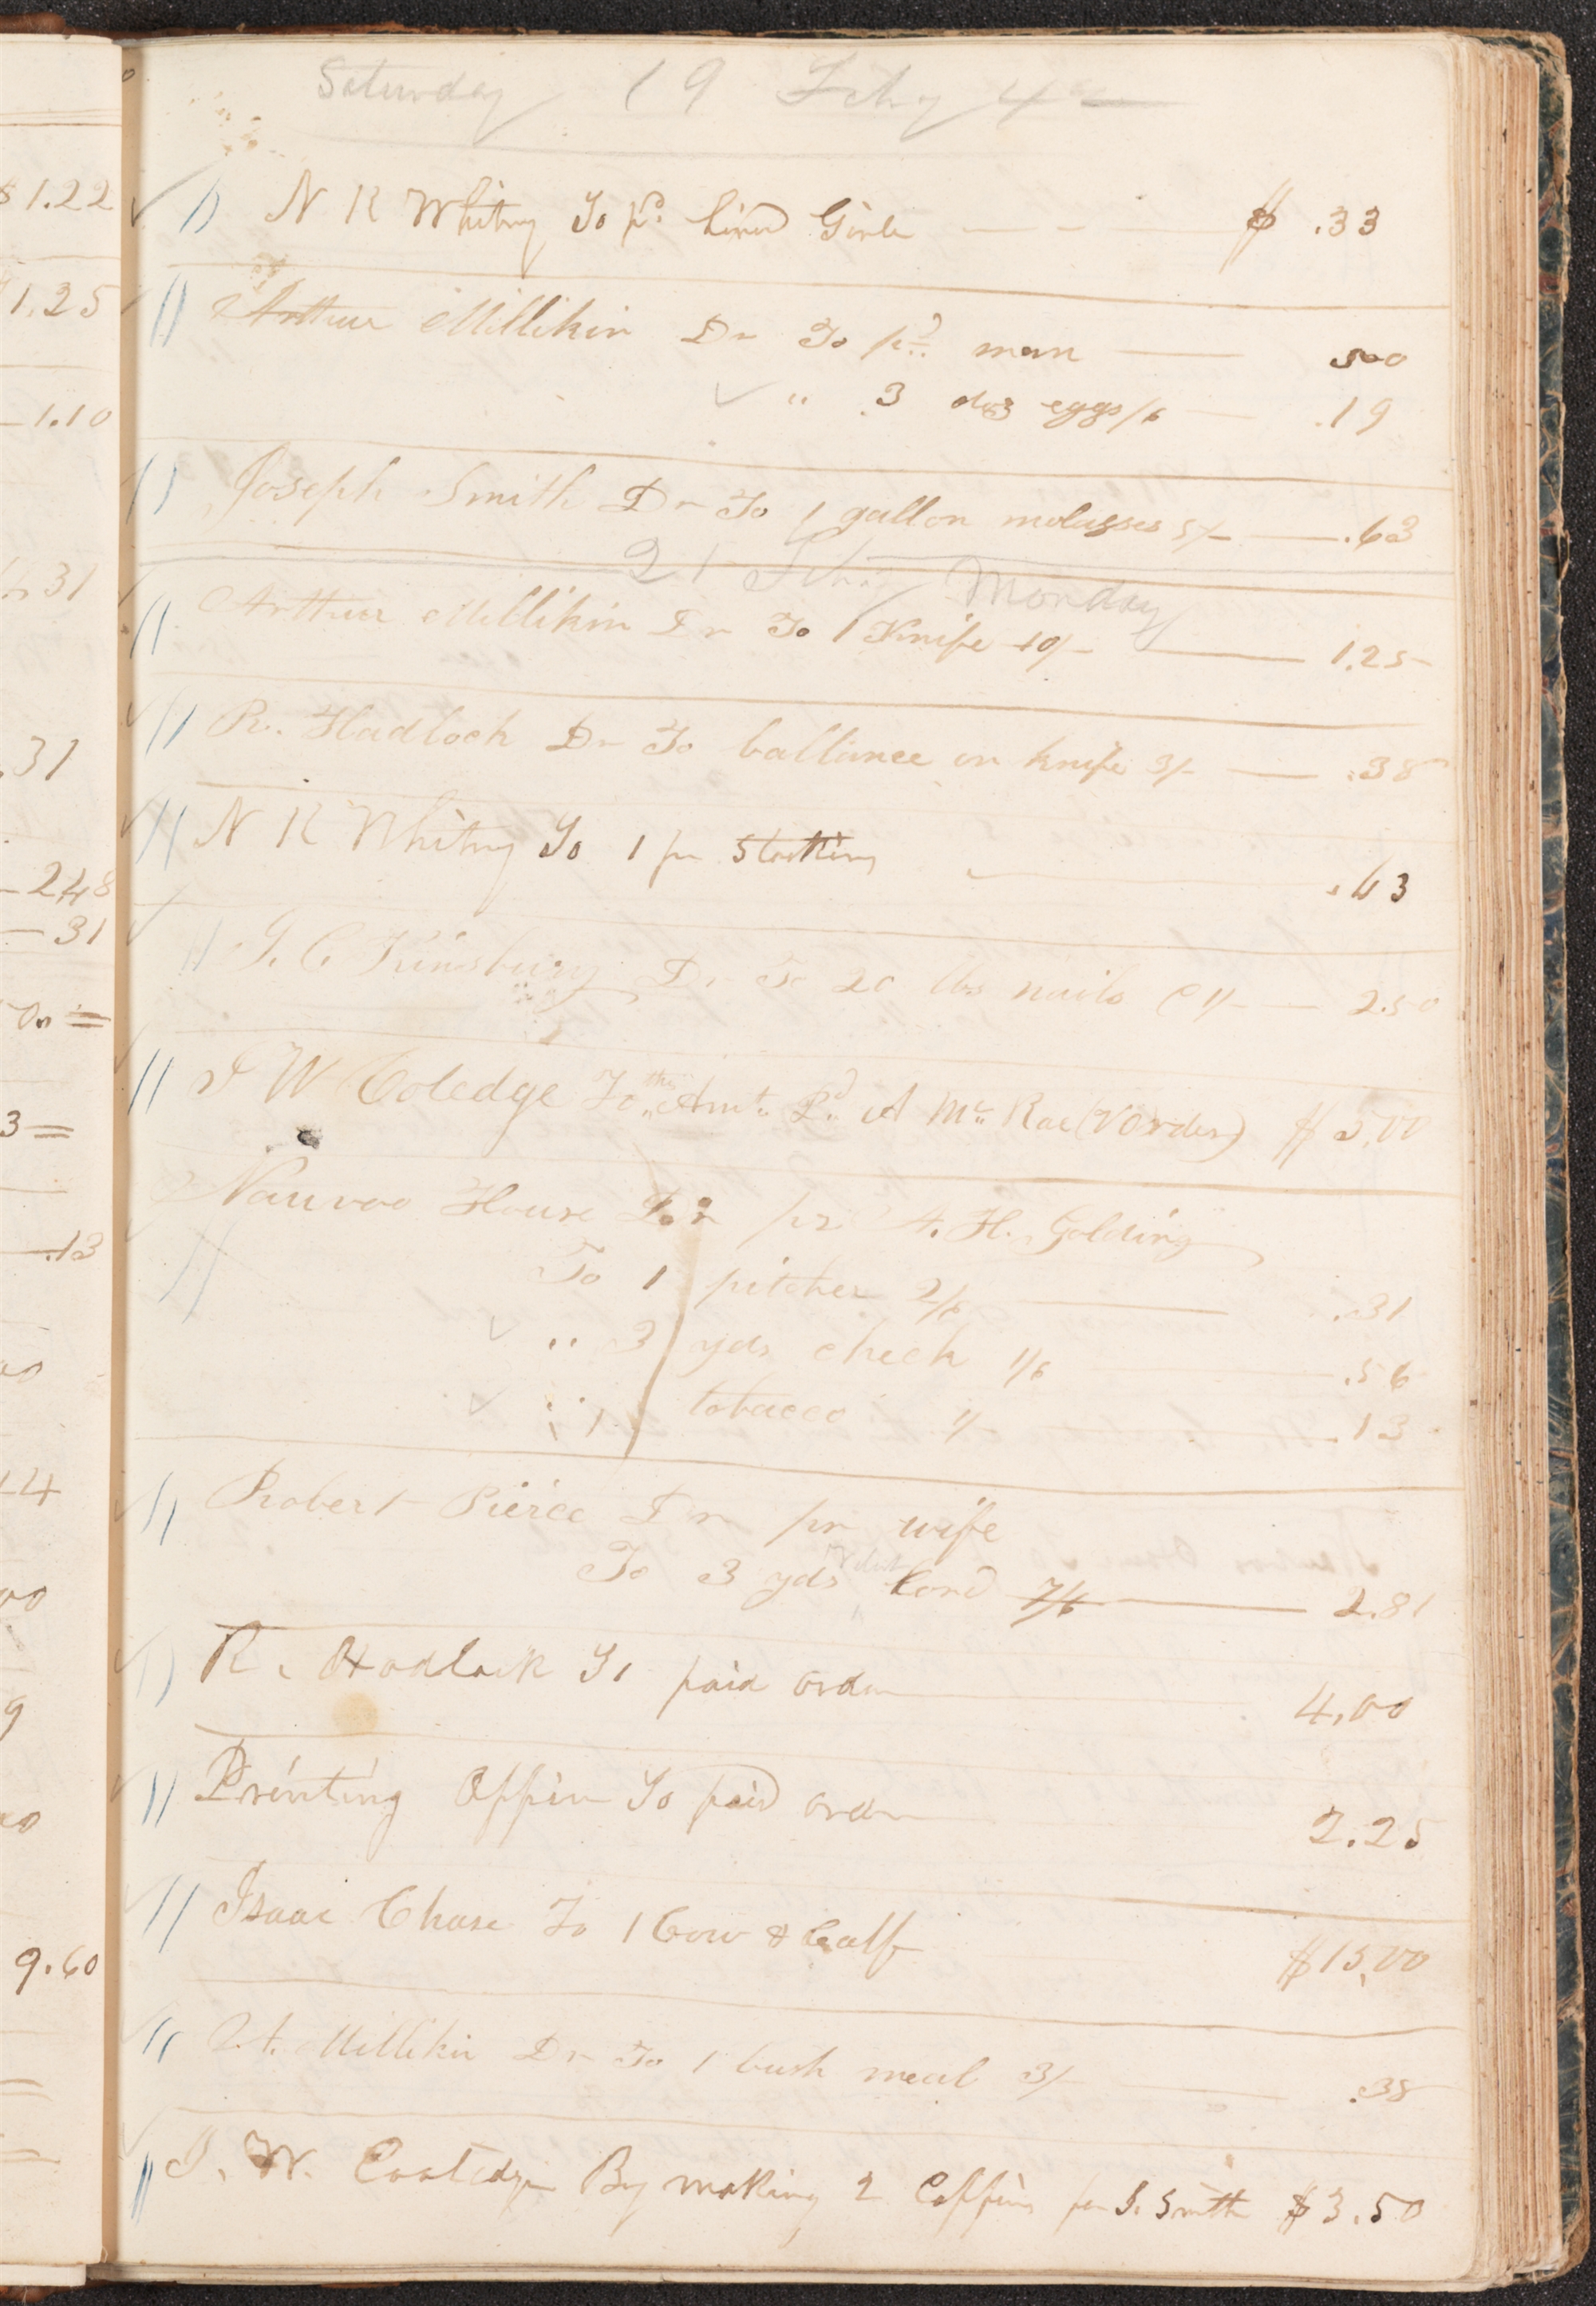 $1.22
1.25
1.10
31
.31
248
31
3=
.13
9
9.60
Saturday 19 Feby 42
N K Whitney To pd. hired Girls $ .33
Arthur Millikin Dr To pd. man 500
" 3 doz eggs /6 .19
Joseph Smith Dr To 1 gallon molasses 5/- .63
21 Feby Monday
Arthur Millikin Dr To 1 Knife 10/- 1.25
R. Hadlock Dr To ballance on knife 3/- .38
N K Whitney To 1 pr Stocking .63
J. C. Kinsbury Dr To 20 lbs nails @ 1/- 2.50
J W Coledge To this Amt. Pd. A Mc. Rae (V Order) $ 5,00
Nauvoo House Dr pr A. H. Golding
To 1 pitcher 2/6 .31
" 3 yds check 1/6 .56
" 1 tobacco 1/- .13
Robert Pierce Dr pr wife
To 3 yds Cord 7/6 2.81
R. Hadlock To paid order 4,00
Printing Office To paid order 2.25
Isaac Chase To 1 Cow & Calf $15,00
A. Millikin Dr To 1 bush meal 3/- .38
J. W. Cooledge By making 2 Coffins for J. Smith $3.50